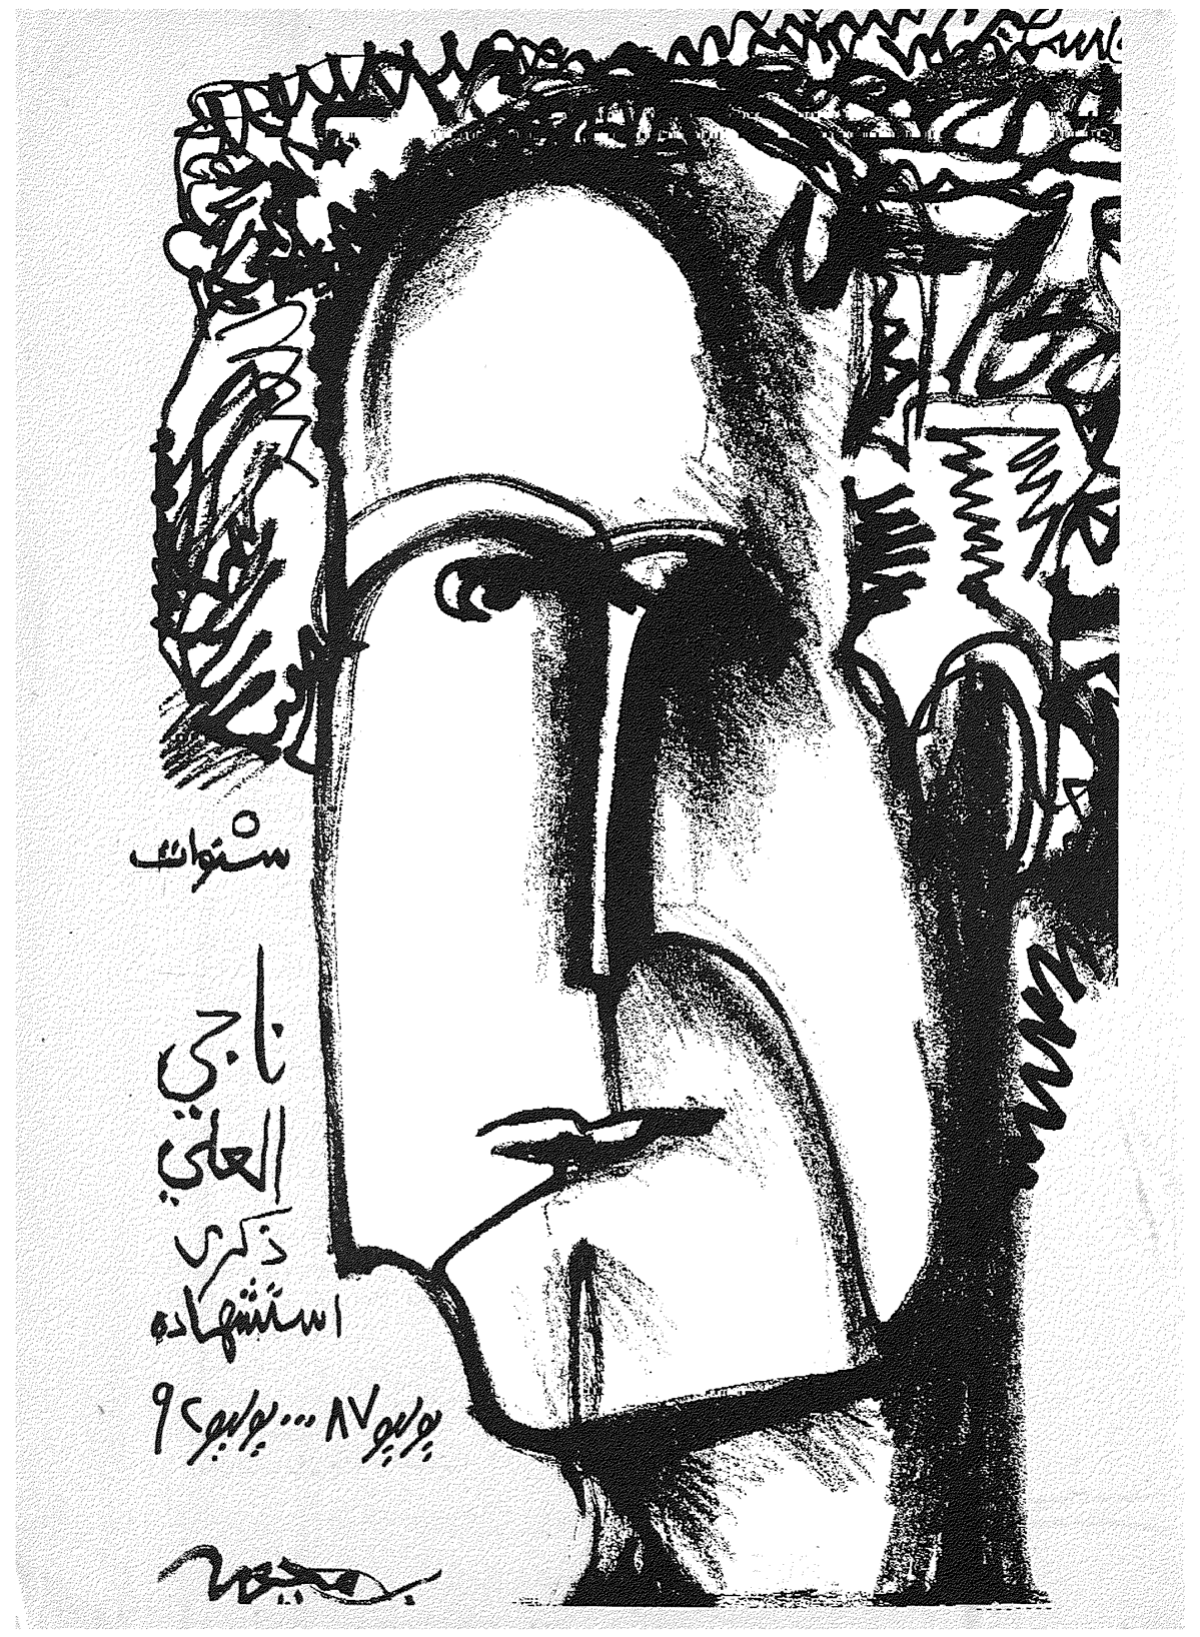 ٥
سنوات
ناجي
العلي
ذكرى
استشهاده
يوليو ٨٧ ... يوليو ٩٢